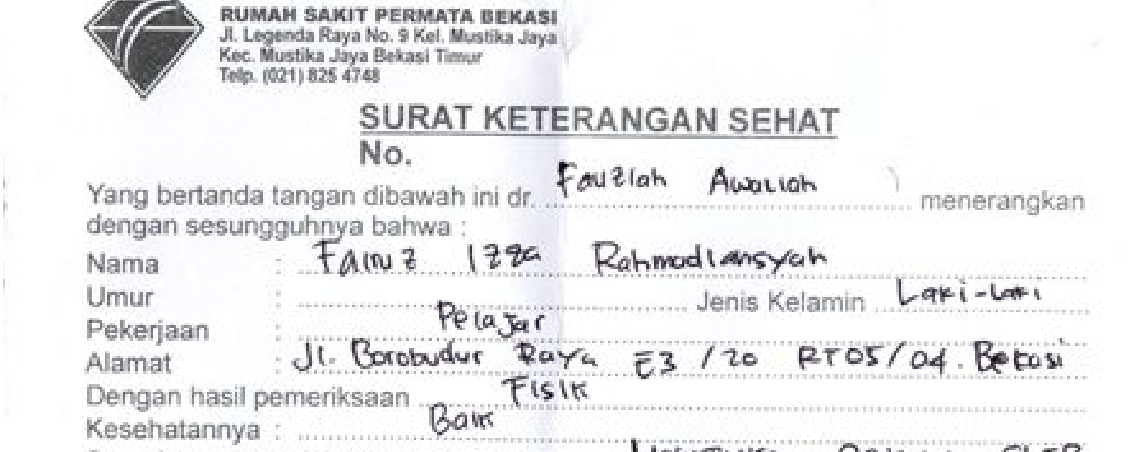 RUMAH SAKIT PERMATA BEKASI
Jl. Legenda Raya No. 9 Kel. Mustika Jaya
Kec. Mustika Jaya Bekasi Timur
Telp. (021) 825 4748
SURAT KETERANGAN SEHAT
No.
Yang bertanda tangan dibawah ini dr. Fauziah Awaliah menerangkan
dengan sesungguhnya bahwa :
Nama : Fairuz Izza Rahmadiansyah
Umur : Jenis Kelamin Laki-laki
Pekerjaan : Pelajar
Alamat : Jl. Borobudur Raya E3 / 20 RT05/04. Bekasi
Dengan hasil pemeriksaan Fisik
Kesehatannya : Baik